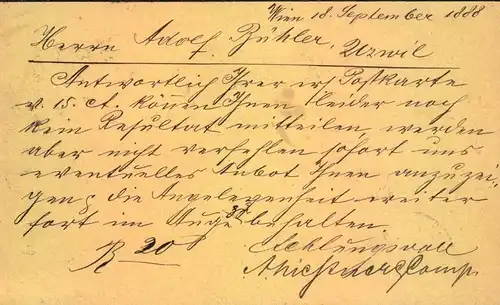 Wien 18. September 1888
Herrn Adolf Bühler, Uzwil
Antwortlich Ihrer w. Postkarte
v. 15. ct. können Ihnen leider noch
kein Resultat mitteilen, werden
aber nicht verfehlen sofort uns
eventuelles Anbot Ihnen anzuzei-
gen & die Angelegenheit weiter
fort im Auge zu behalten.
R 208 Achtungsvoll
& Comp.